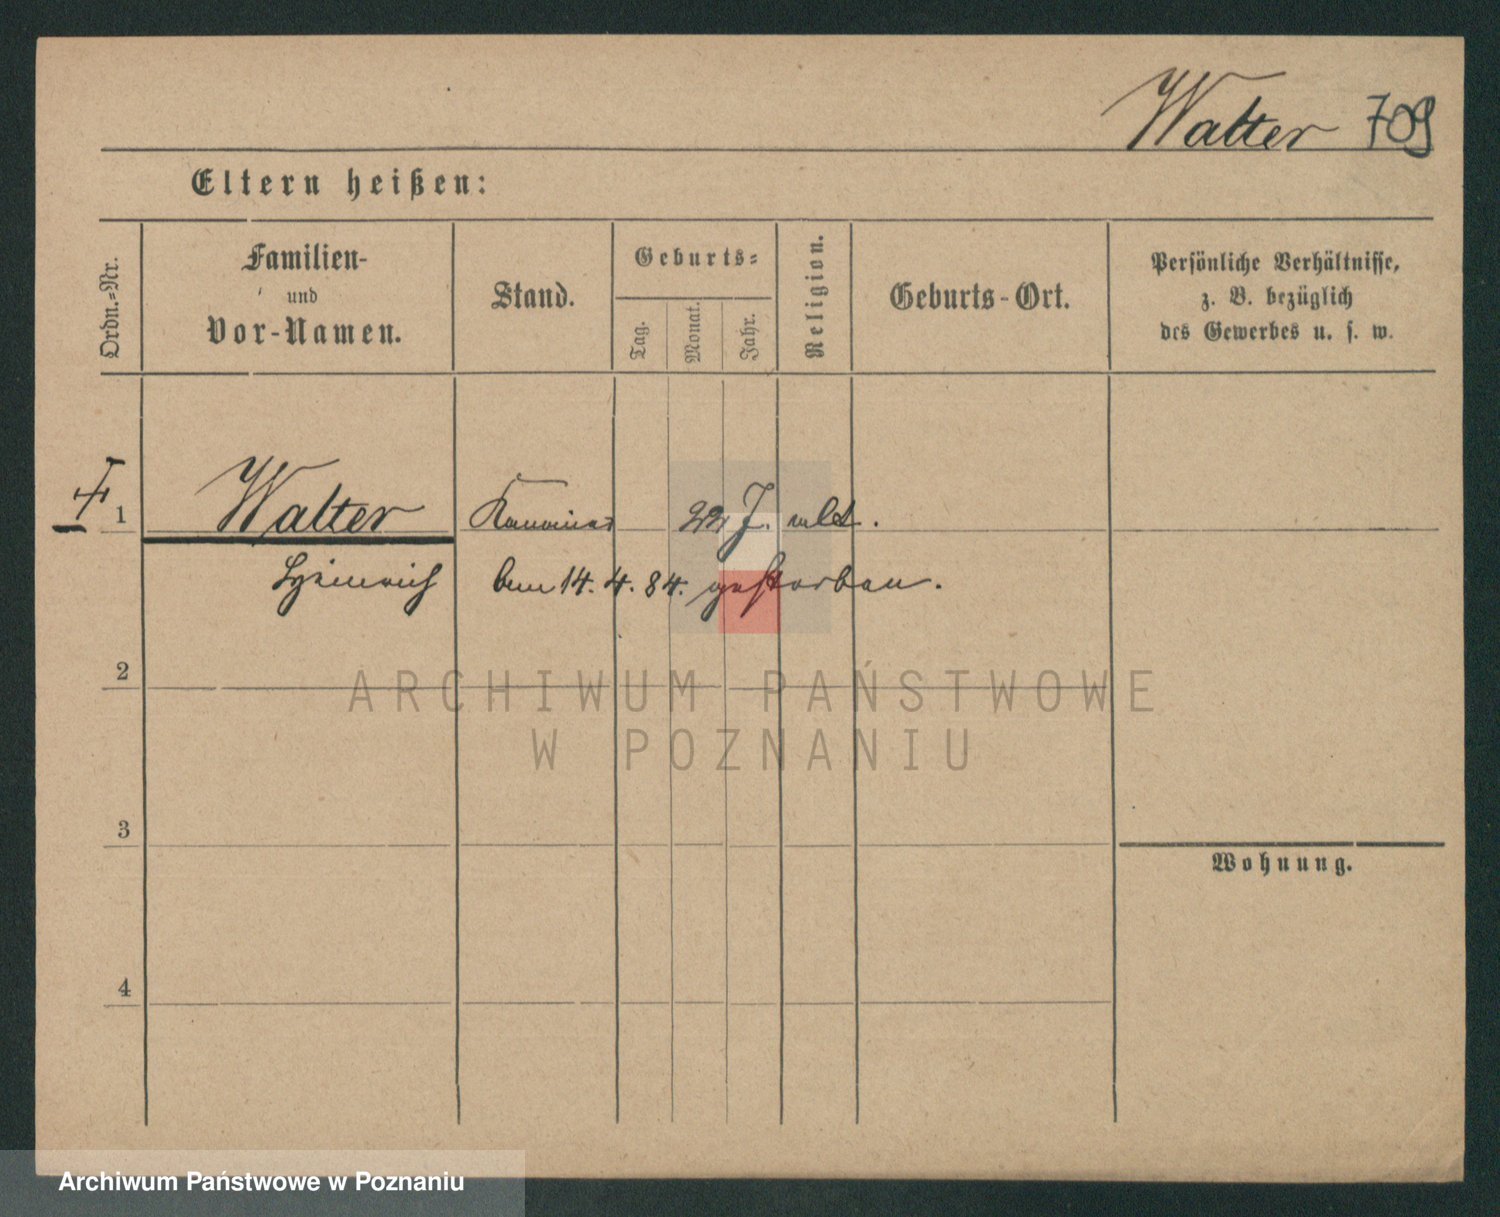 Walter 709
Eltern heißen:
Ordn.=Nr.
Familien-
und
Vor-Namen.
Stand.
Geburts=
Tag.
Monat.
Jahr.
Religion.
Geburts-Ort.
Persönliche Verhältnisse,
z. B. bezüglich
des Gewerbes u. s. w.
1 Walter Kanonier 22 J. alt.
Heinrich am 14. 4. 84. gestorben.
2
ARCHIWUM PAŃSTWOWE
W POZNANIU
3
Wohnung.
4
Archiwum Państwowe w Poznaniu